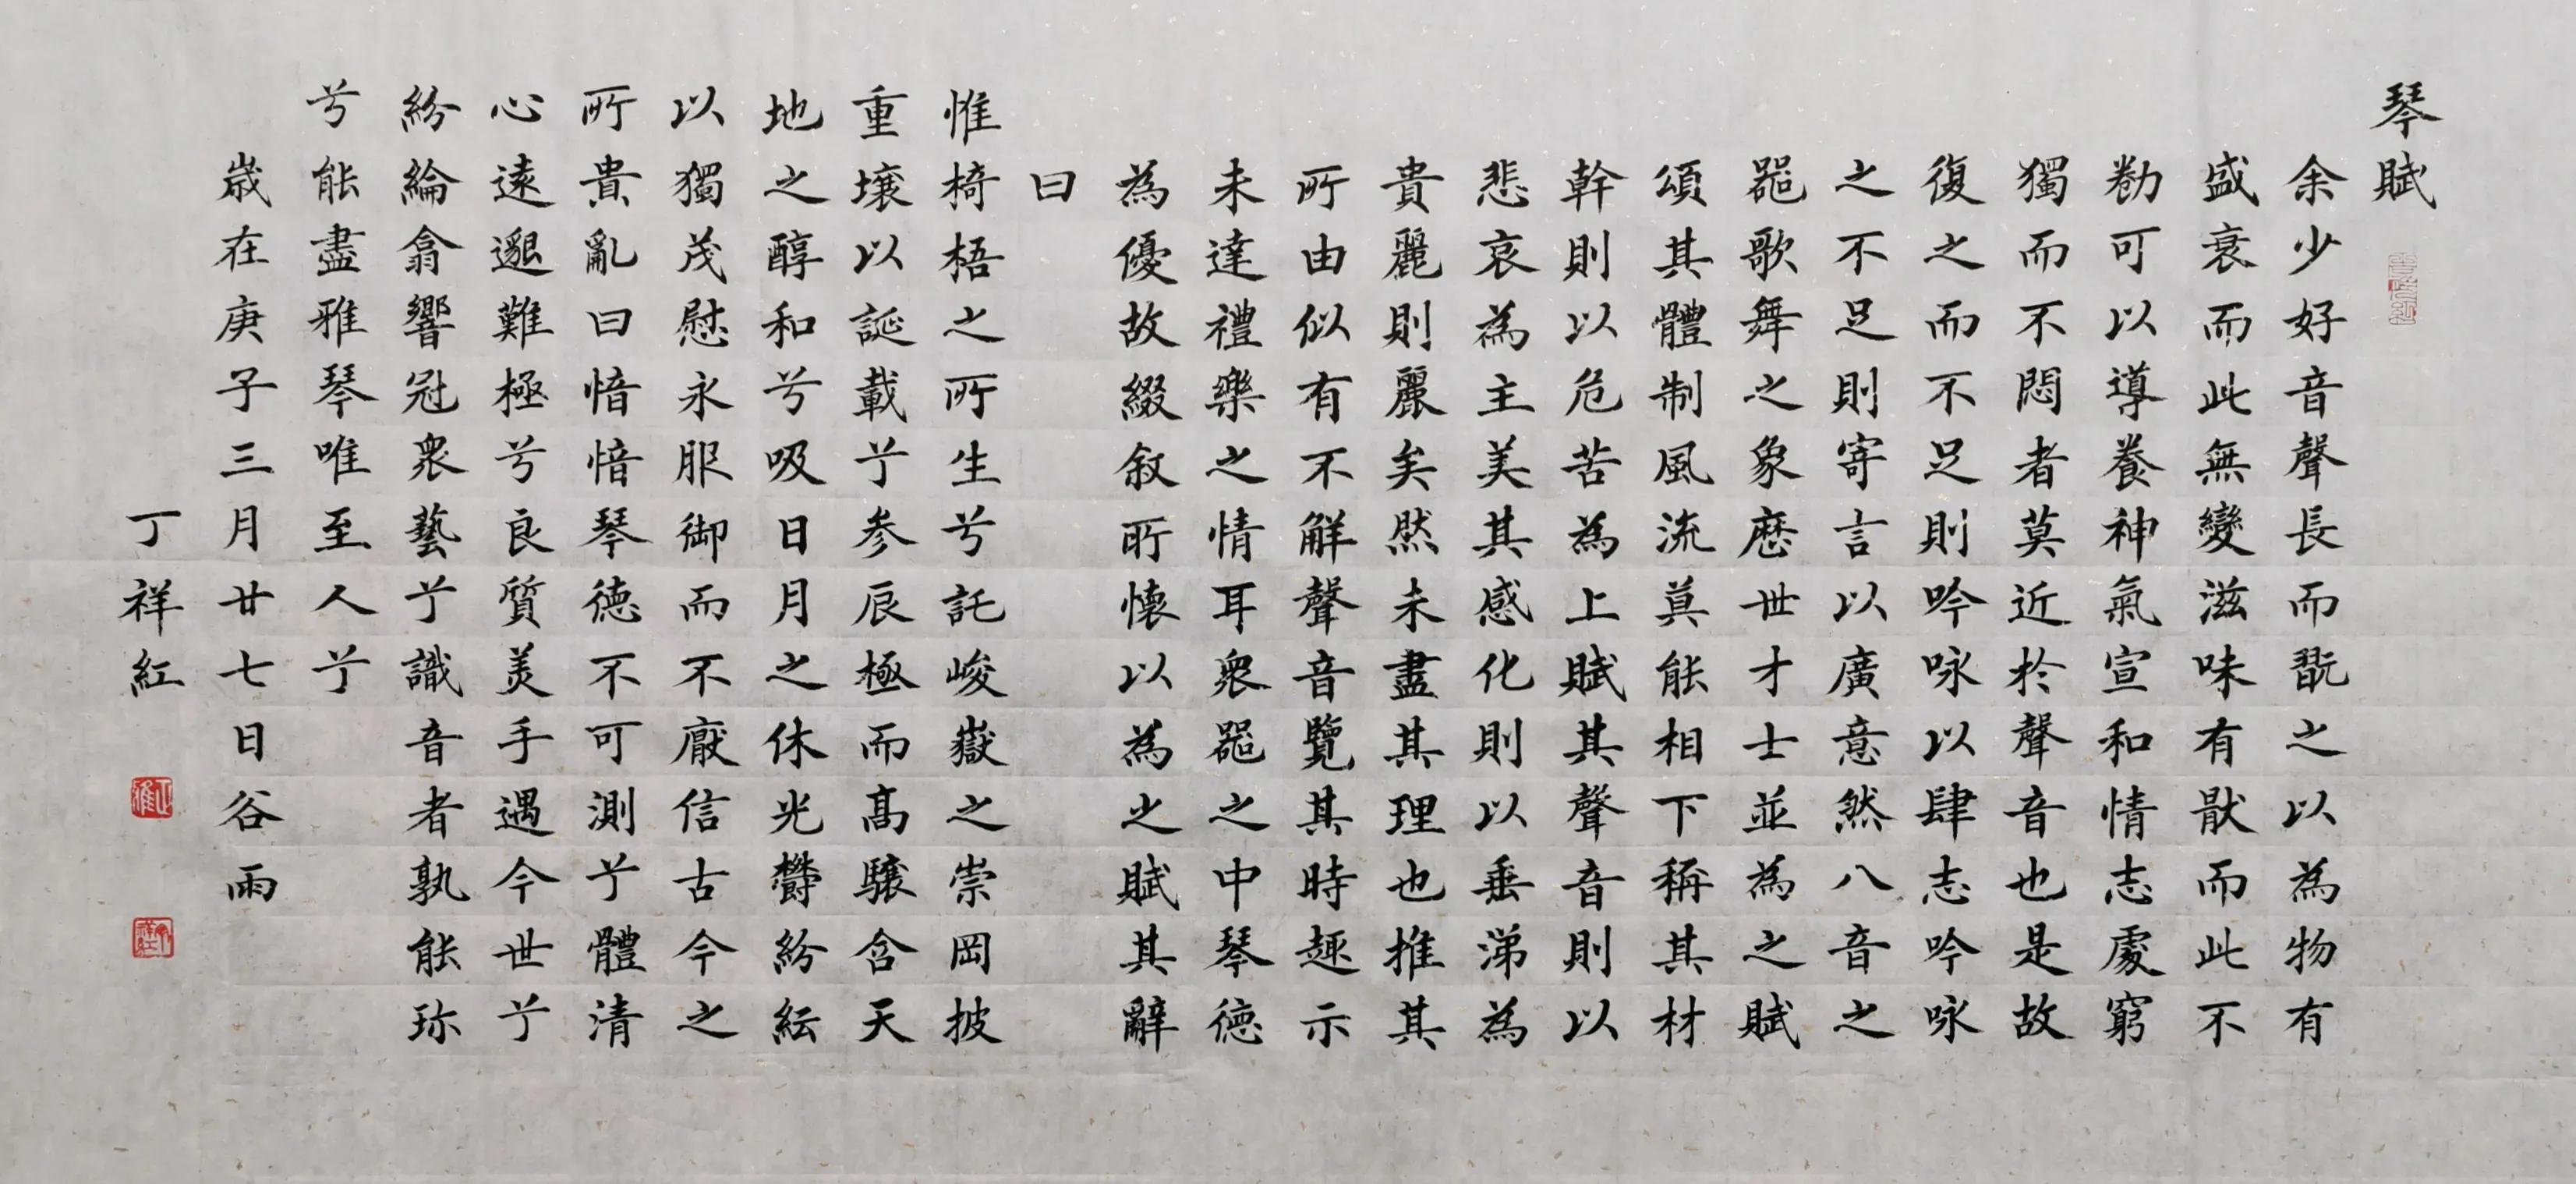 琴賦
余少好音聲長而翫之以為物有
盛衰而此無變滋味有猒而此不
勌可以導養神氣宣和情志處窮
獨而不悶者莫近於聲音也是故
復之而不足則吟咏以肆志吟咏
之不足則寄言以廣意然八音之
器歌舞之象歷世才士並為之賦
頌其體制風流莫能相下稱其材
幹則以危苦為上賦其聲音則以
悲哀為主美其感化則以垂涕為
貴麗則麗矣然未盡其理也推其
所由似有不解聲音覽其時趣示
未達禮樂之情耳衆器之中琴德
為優故綴叙所懷以為之賦其辭
曰
惟椅梧之所生兮託峻嶽之崇岡披
重壤以誕載兮参辰極而高驤含天
地之醇和兮吸日月之休光鬱紛紜
以獨茂慰永服御而不厭信古今之
所貴亂曰愔愔琴德不可測兮體清
心遠邈難極兮良質美手遇今世兮
紛綸翕響冠衆藝兮識音者孰能珎
兮能盡雅琴唯至人兮
歲在庚子三月廿七日谷雨
丁祥紅